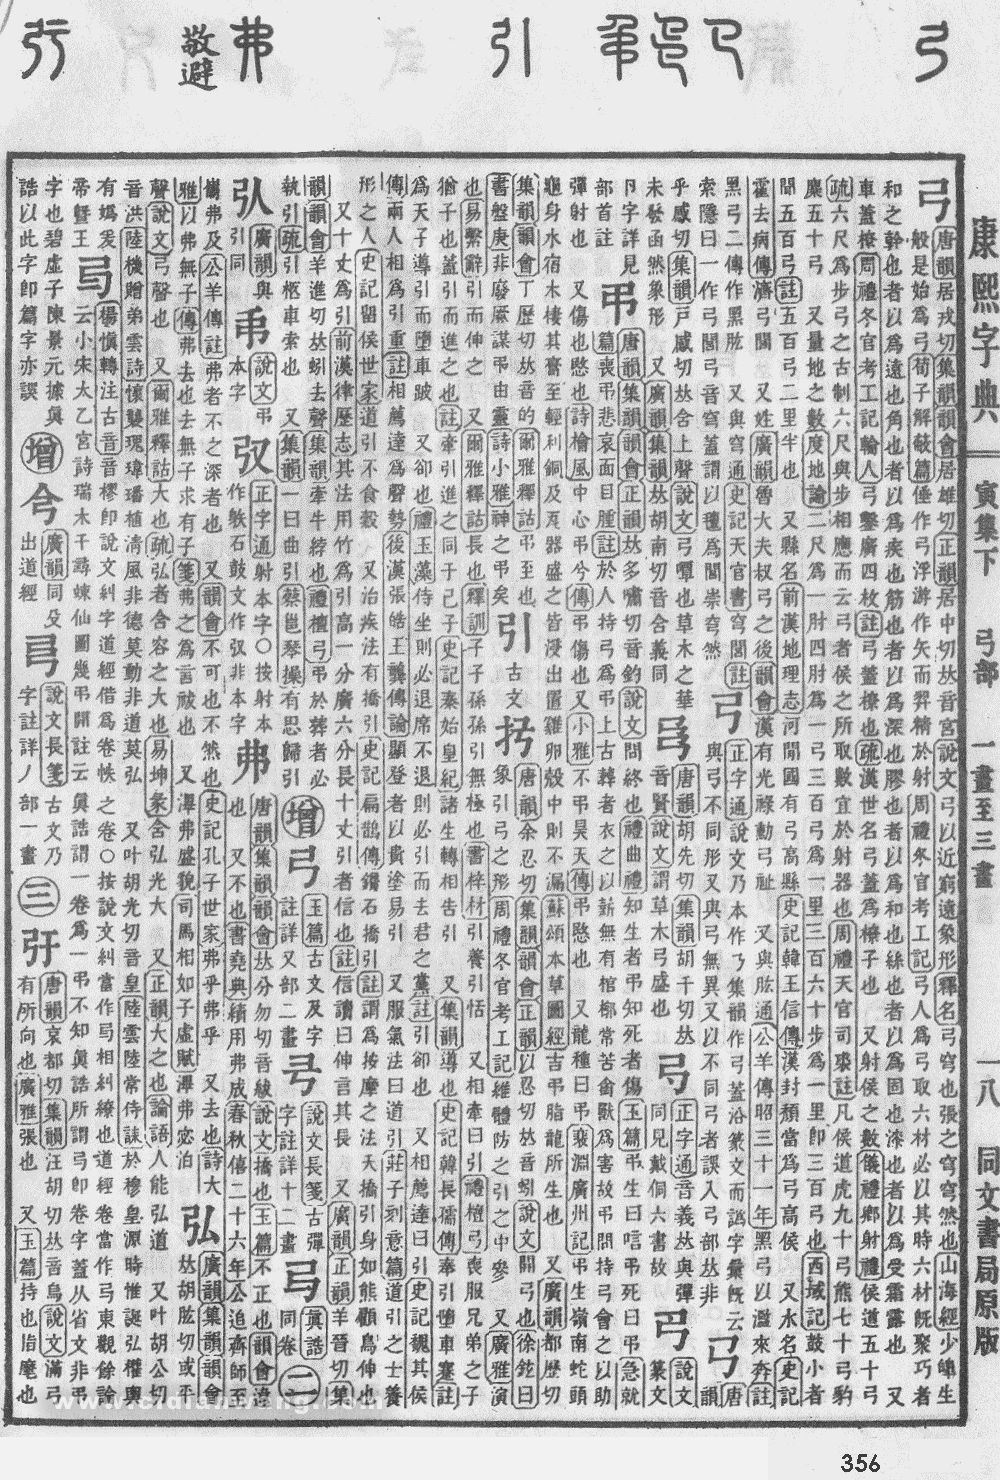 弓
敬避
弗
引
康熙字典 寅集下 弓部 一畫至三畫 一八 同文書局原版
弓 唐韻居戎切集韻韻會居雄切正韻居中切𠀤音宮說文弓以近窮遠象形釋名弓穹也張之穹穹然也山海經少皡生
般是始爲弓荀子解蔽篇倕作弓浮游作矢而羿精於射周禮冬官考工記弓人爲弓取六材必以其時六材旣聚巧者
和之幹也者以爲遠也角也者以爲疾也筋也者以爲深也膠也者以爲和也絲也者以爲固也漆也者以爲受霜露也 又
車蓋橑周禮冬官考工記輪人弓鑿廣四枚註弓蓋橑也疏漢世名弓蓋爲橑子也 又射侯之數儀禮鄉射禮侯道五十弓
疏六尺爲步弓之古制六尺與步相應而云弓者侯之所取數宜於射器也周禮天官司裘註凡侯道虎九十弓熊七十弓豹
麋五十弓 又量地之數度地論二尺爲一肘四肘爲一弓三百弓爲一里三百六十步爲一里卽三百弓也西域記鼓小者
聞五百弓註五百弓二里半也 又縣名前漢地理志河閒國有弓高縣史記韓王信傳漢封頹當爲弓高侯 又水名史記
霍去病傳濟弓閭 又姓廣韻魯大夫叔弓之後韻會漢有光祿勳弓祉 又與肱通公羊傳昭三十一年黑弓以濫來奔註
黑弓二傳作黑肱 又與穹通史記天官書穹閭註
索隱曰一作弓閭弓音穹蓋謂以氊爲閭崇穹然
正字通說文乃本作乃集韻作弓蓋沿篆文而譌字彙旣云
與弓不同形又與弓無異又以不同弓者誤入弓部𠀤非
唐韻
乎感切集韻戸感切𠀤含上聲說文弓嘾也草木之華
未發函然象形 又廣韻集韻𠀤胡南切音含義同
唐韻胡先切集韻胡千切𠀤
音賢說文謂草木弓盛也
正字通音義𠀤與彈
同見戴侗六書故
說文
篆文
卪字詳見
部首註
弔 唐韻集韻韻會正韻𠀤多嘯切音釣說文問終也禮曲禮知生者弔知死者傷玉篇弔生曰唁弔死曰弔急就
篇喪弔悲哀面目腫註於人持弓爲弔上古葬者衣之以薪無有棺槨常苦禽獸爲害故弔問持弓會之以助
彈射也 又傷也愍也詩檜風中心弔兮傳弔傷也又小雅不弔昊天傳弔愍也 又龍種曰弔裴淵廣州記弔生嶺南蛇頭
龜身水宿木棲其膏至輕利銅及瓦器盛之皆浸出置雞卵殼中則不漏蘇頌本草圖經吉弔脂龍所生也 又廣韻都歷切
集韻韻會丁歷切𠀤音的爾雅釋詁弔至也
書盤庚非廢厥謀弔由靈詩小雅神之弔矣
引 古文 唐韻余忍切集韻韻會正韻以忍切𠀤音蚓說文開弓也徐鉉曰
象引弓之形周禮冬官考工記維體防之引之中參 又廣雅演
也易繫辭引而伸之 又爾雅釋詁長也釋訓子子孫孫引無極也書梓材引養引恬 又相牽曰引禮檀弓喪服兄弟之子
猶子也蓋引而進之也註牽引進之同于己子史記秦始皇紀諸生轉相告引 又集韻導也史記韓長孺傳奉引墮車蹇註
爲天子導引而墮車跛 又卻也禮玉藻侍坐則必退席不退則必引而去君之黨註引卻也 又相薦達曰引史記魏其侯
傳兩人相爲引重註相薦達爲聲勢後漢張皓王龔傳論顯登者以貴塗易引 又服氣法曰道引莊子刻意篇道引之士養
形之人史記留侯世家道引不食穀 又治疾法有撟引史記扁鵲傳鑱石撟引註謂爲按摩之法夭撟引身如熊顧鳥伸也
又十丈爲引前漢律歷志其法用竹爲引高一分廣六分長十丈引者信也註信讀曰伸言其長 又廣韻正韻羊晉切集
韻韻會羊進切𠀤蚓去聲集韻牽牛綍也禮檀弓弔於葬者必
執引疏引柩車索也 又集韻一曰曲引蔡邕琴操有思歸引
增 玉篇古文及字
註詳又部二畫
說文長箋古彈
字註詳十二畫
眞誥
同卷
二
弘 廣韻與
引同
說文弔
本字
正字通射本字○按射本
作躲石鼓文作㢭非本字
弗 唐韻集韻韻會𠀤分勿切音紱說文撟也玉篇不正也韻會違
也 又不也書堯典績用弗成春秋僖二十六年公追齊師至
巂弗及公羊傳註弗者不之深者也 又韻會不可也不然也史記孔子世家弗乎弗乎 又去也詩大
雅以弗無子傳弗去也去無子求有子箋弗之爲言祓也 又㵒弗盛貌司馬相如子虛賦㵒弗宓汨
弘 廣韻集韻韻會
𠀤胡肱切或平
聲說文弓聲也 又爾雅釋詁大也疏弘者含容之大也易坤彖含弘光大 又正韻大之也論語人能弘道 又叶胡公切
音洪陸機贈弟雲詩懷襲瑰瑋播植淸風非德莫勳非道莫弘 又叶胡光切音皇陸雲陸常侍誄於穆皇源時惟誕弘權輿
有嬀爰
帝曁王
楊慎轉注古音音樛卽說文糾字道經借爲卷帙之卷○按說文糾當作𢎧相糾繚也道經卷當作弓東觀餘論
云小宋太乙宮詩瑞木千尋竦仙圖幾弔開註云眞誥謂一卷爲一弔不知眞誥所謂弓卽卷字蓋从省文非弔
字也碧虛子陳景元據眞
誥以此字卽篇字亦誤
增 廣韻同殳
出道經
說文長箋古文乃
字註詳丿部一畫
三
唐韻哀都切集韻汪胡切𠀤音烏說文滿弓
有所向也廣雅張也 又玉篇持也指麾也
356